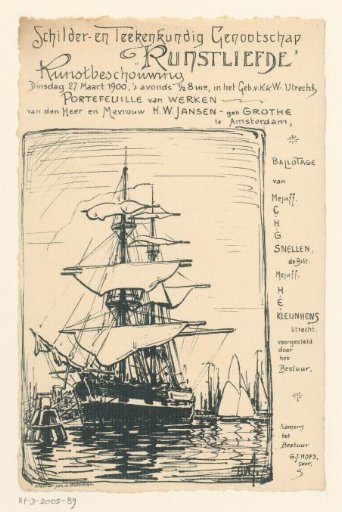 Schilder-en Teekenkundig Genootschap
"KUNSTLIEFDE"
Kunstbeschouwing
Dinsdag 27 Maart 1900, 's avonds ½8 ure, in het Geb. v. K & W. Utrecht,
PORTEFEUILLE van WERKEN
van den Heer en Mevrouw H.W. JANSEN - geb GROTHE
te Amsterdam,
BALLOTAGE
van
Mejuff.
C
H
G
SNELLEN,
de Bilt.
Mejuff.
H
E
KLEIJNHENS
Utrecht.
voorgesteld
door
het
Bestuur.
Namens
het
Bestuur
G.J. HOFS,
Secr.
RP-D-2005-89